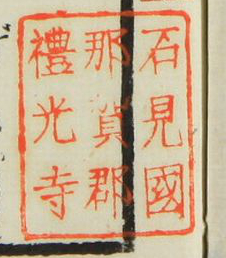 石見國
那賀郡
禮光寺